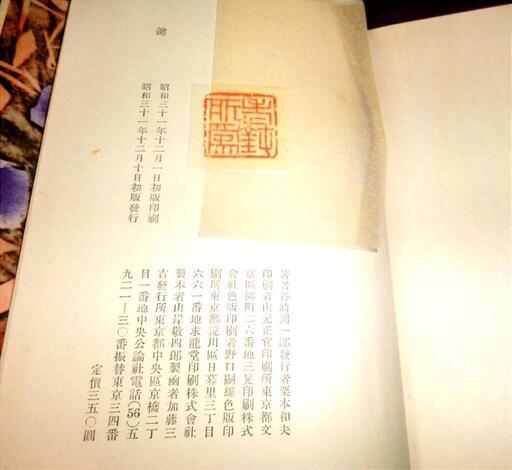 鍵
昭和三十一年十二月一日初版印刷
昭和三十一年十二月十日初版發行
著者谷崎潤一郎發行者栗本和夫
印刷者山元正宜印刷所東京都文
京區柳町二六番地三晃印刷株式
會社色版印刷者野口嗣雄色版印
刷所東京都荒川區日暮里三丁目
六六一番地求龍堂印刷株式會社
製本者山岸敬四郎製凾者加藤三
吉發行所東京都中央區京橋二丁
目一番地中央公論社電話(56)五
九二一—三〇番振替東京三四番
定價三五〇圓